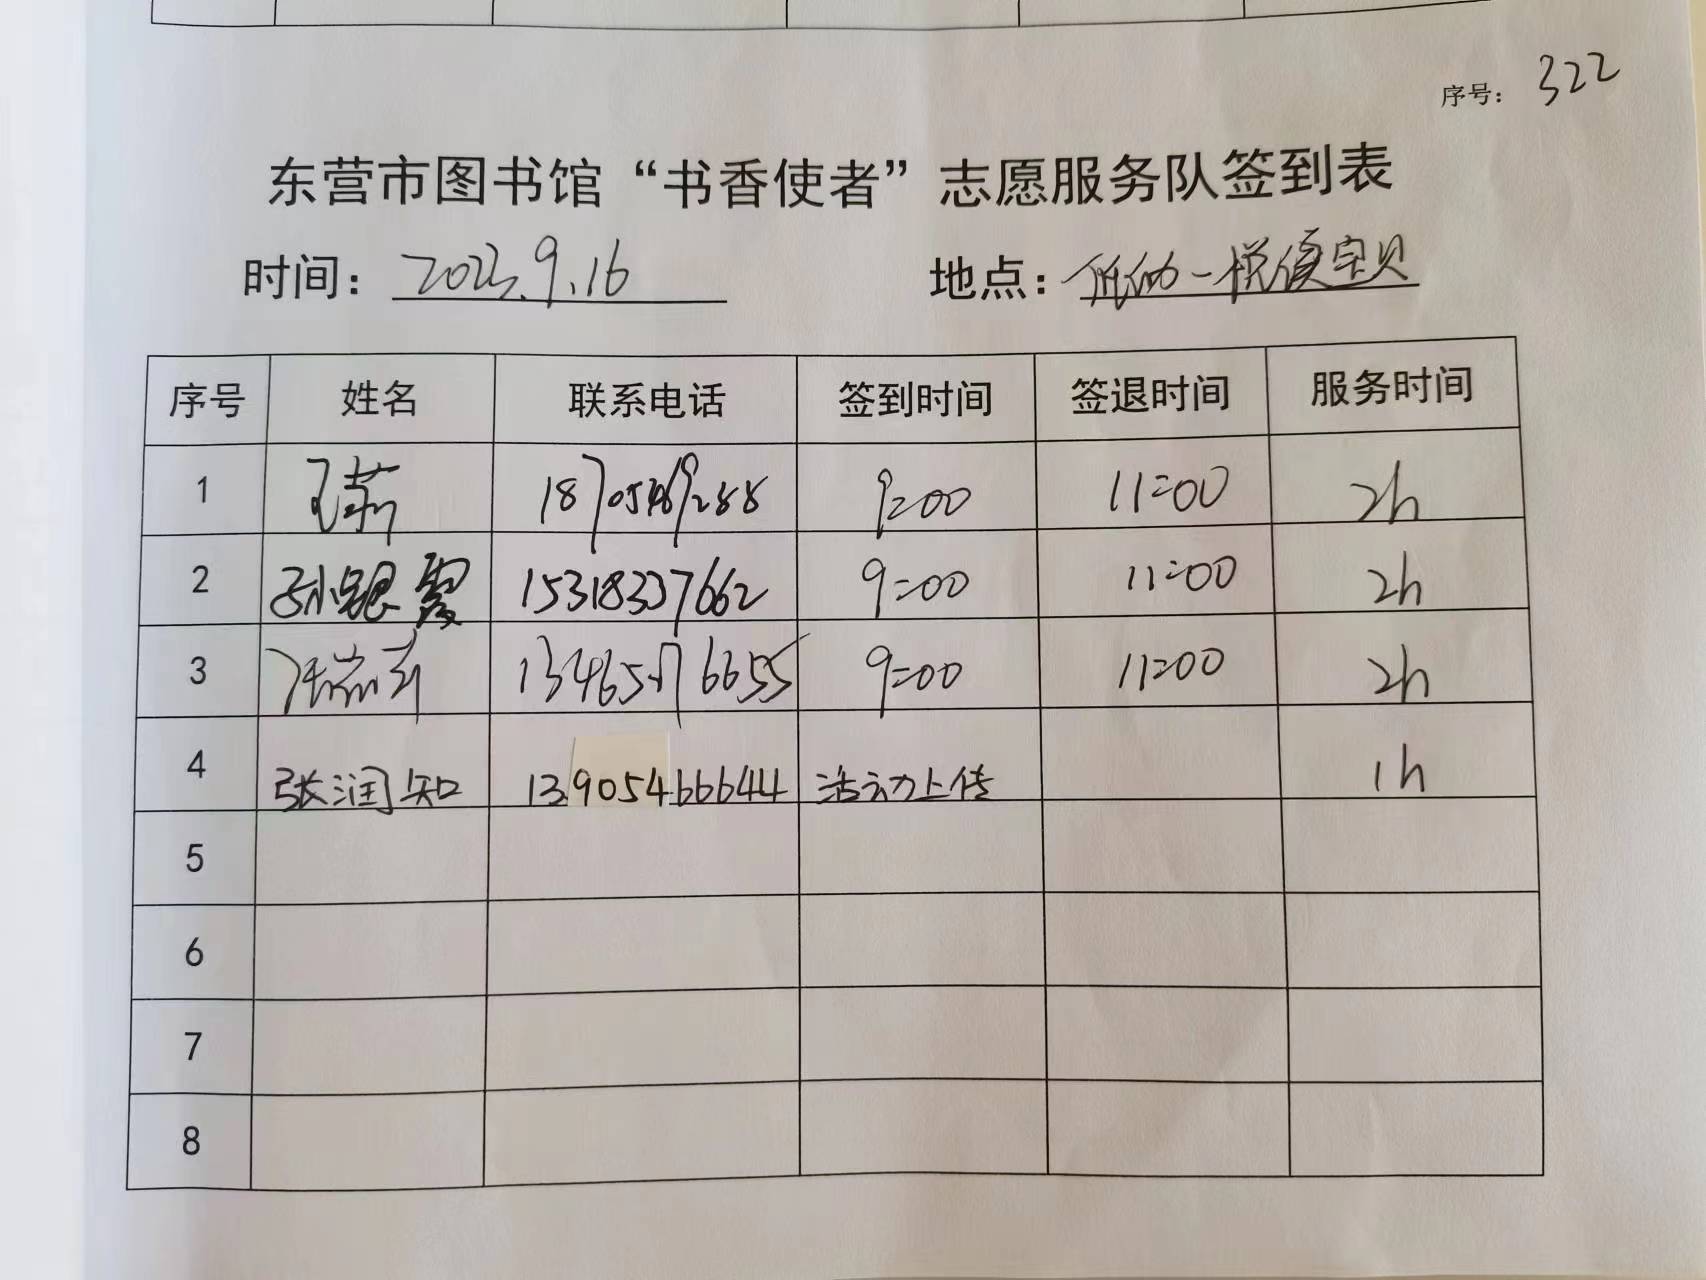 序号： 322
东营市图书馆“书香使者”志愿服务队签到表
时间：2023.9.16 地点：低幼一悦读宝贝
序号 姓名 联系电话 签到时间 签退时间 服务时间
1 王莉 18705469288 9:00 11:00 2h
2 孙银霞 15318337662 9:00 11:00 2h
3 6655 9:00 11:00 2h
4 张润知 13905466644 活动上传 1h
5
6
7
8